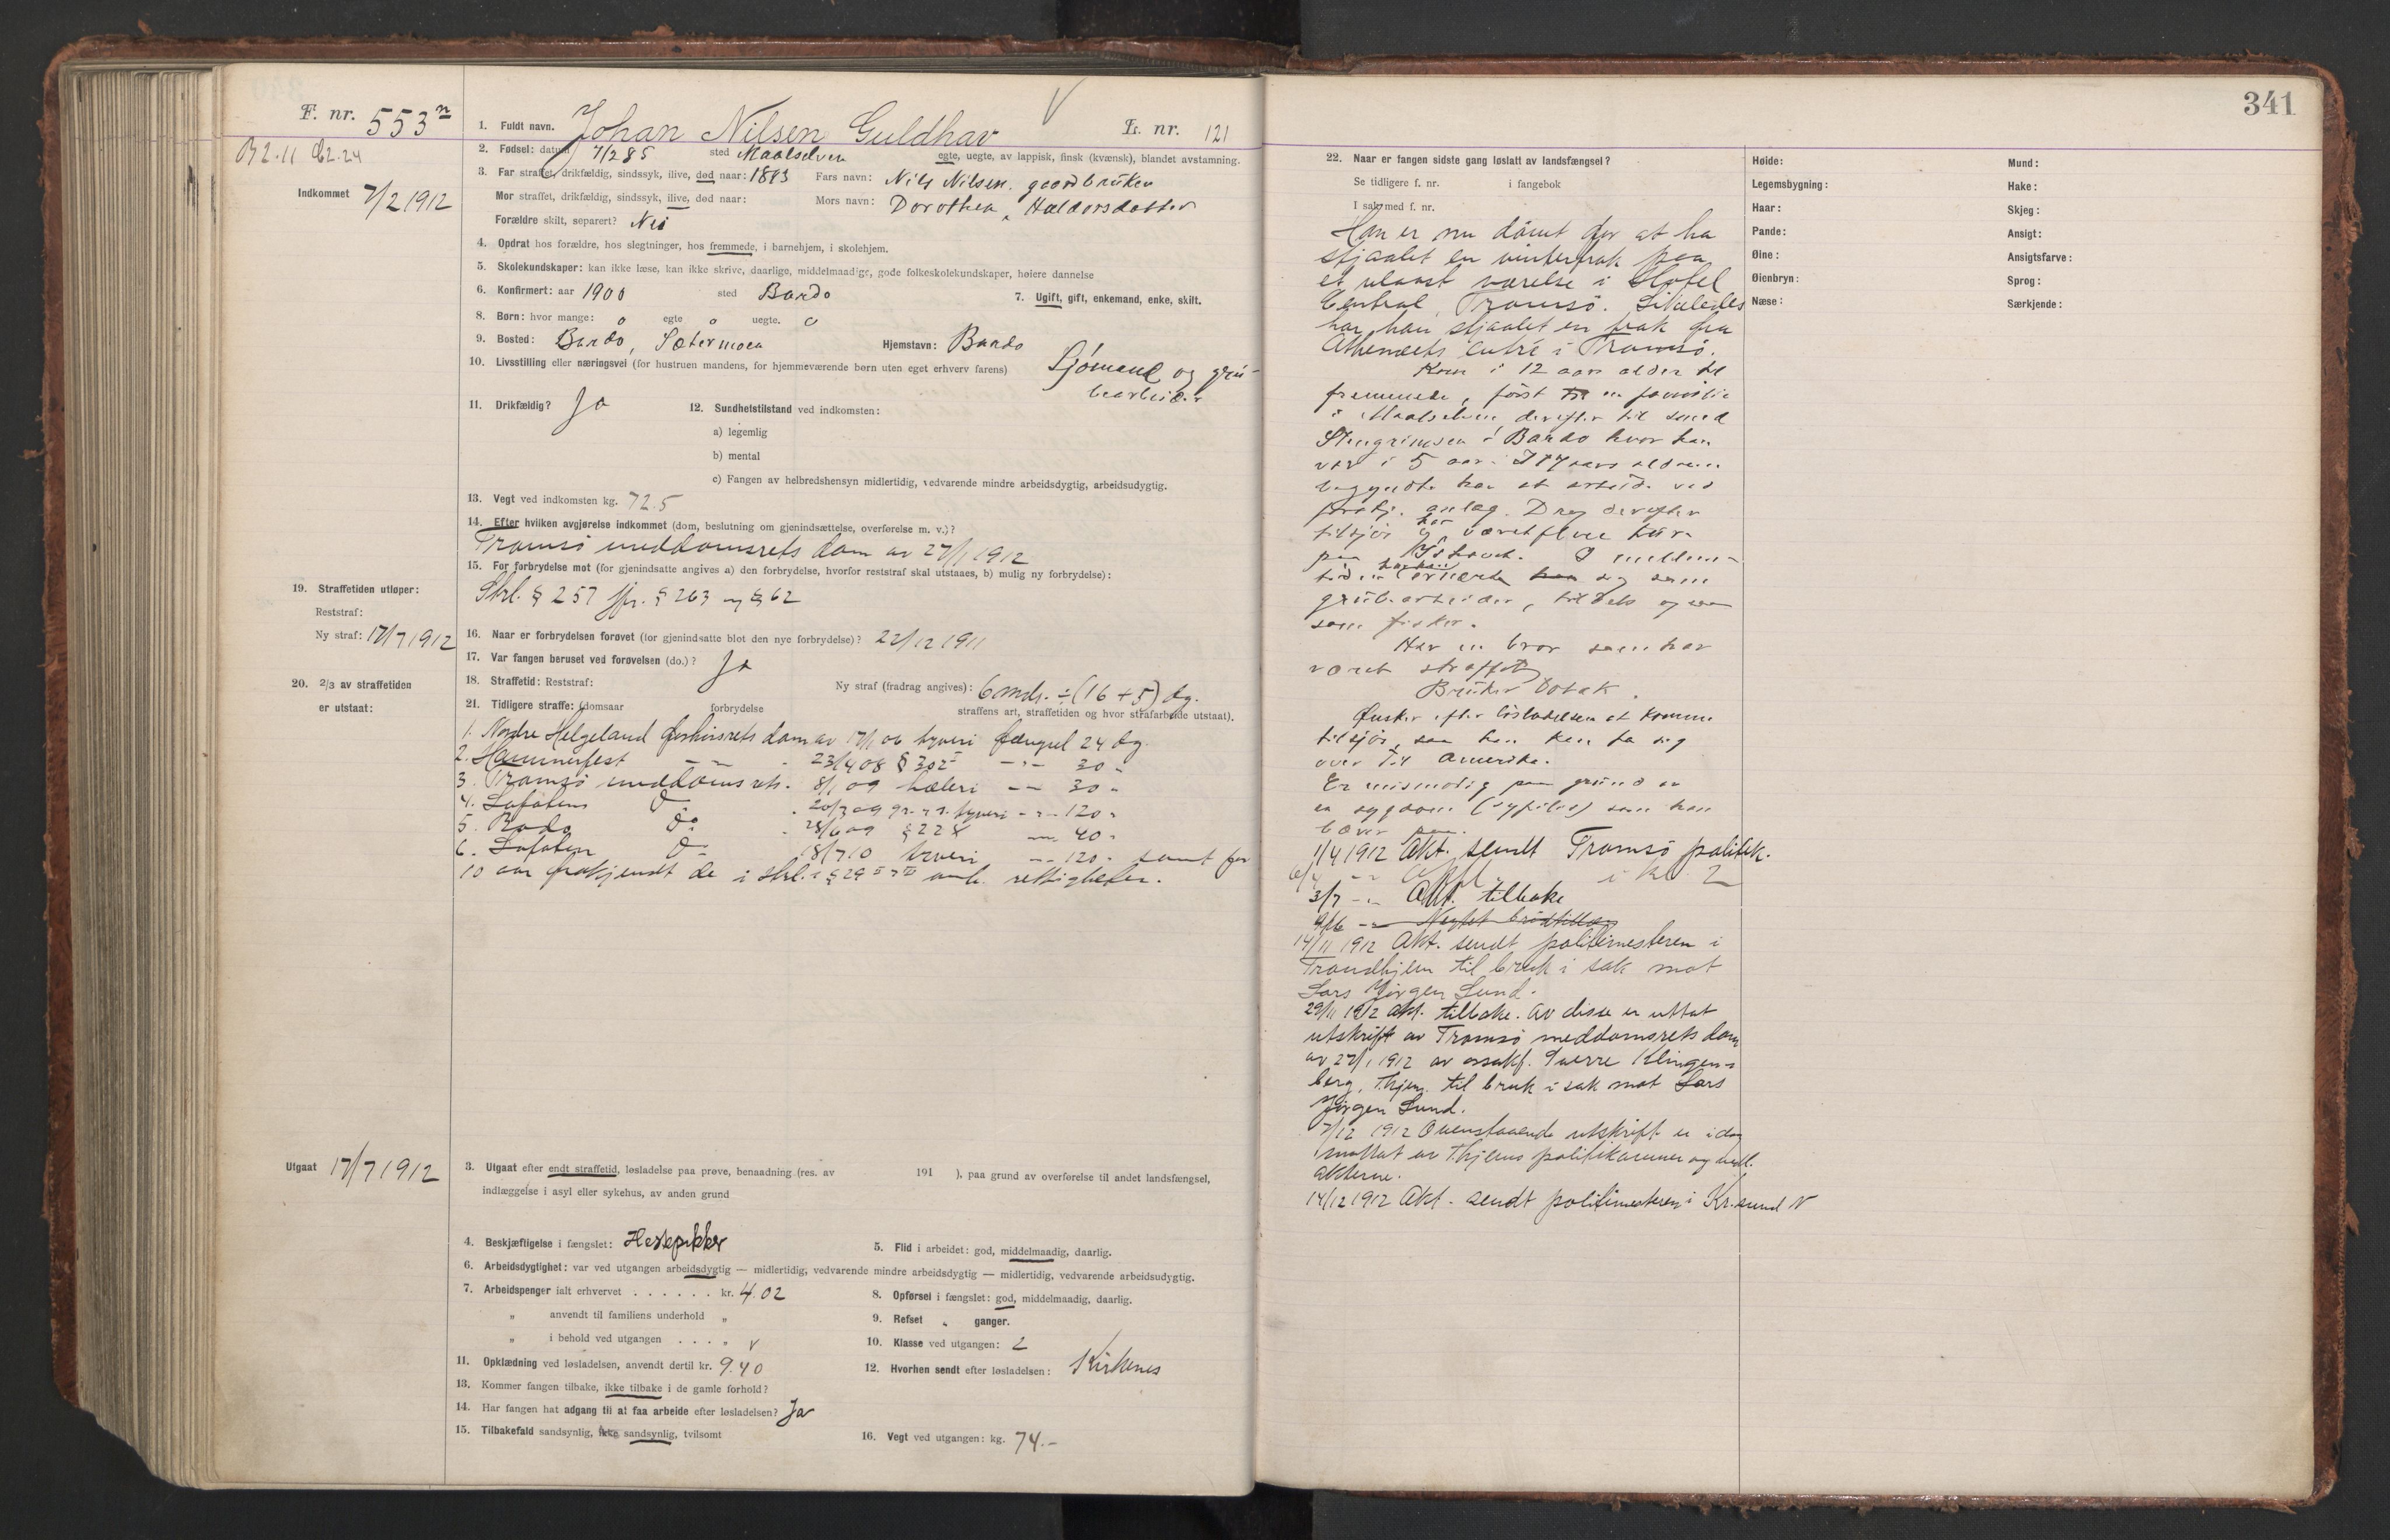 F. nr. 553
1. Fuldt navn. Johan Nilsen Guldhav L. nr. 121
2. Fødsel: datum 7/2 85 sted Maalselven egte, uegte, av lappisk, finsk (kvænsk), blandet avstamning.
Indkommet 7/2 1912
3. Far straffet, drikfældig, sindssyk, ilive, død naar: 1893 Fars navn: Nils Nilsen. gaardbruker
Mor straffet, drikfældig, sindssyk, ilive, død naar: Mors navn: Dorothea Haldorsdatter
Forældre skilt, separert? Nei
4. Opdrat hos forældre, hos slegtninger, hos fremmede, i barnehjem, i skolehjem.
5. Skolekundskaper: kan ikke læse, kan ikke skrive, daarlige, middelmaadige, gode folkeskolekundskaper, høiere dannelse
6. Konfirmert: aar 1900 sted Bardo 7. Ugift, gift, enkemand, enke, skilt.
8. Børn: hvor mange: 0 egte 0 uegte. 0
9. Bosted: Bardo, Sætermoen Hjemstavn: Bardo
10. Livsstilling eller næringsvei (for hustruen mandens, for hjemmeværende børn uten eget erhverv farens) Sjømand og gru-
bearbeider
11. Drikfældig? Ja 12. Sundhetstilstand ved indkomsten:
a) legemlig
b) mental
c) Fangen av helbredshensyn midlertidig, vedvarende mindre arbeidsdygtig, arbeidsudygtig.
13. Vegt ved indkomsten kg. 72.5
14. Efter hvilken avgjørelse indkommet (dom, beslutning om gjenindsættelse, overførelse m. v.)?
Tromsø meddomsrets dom av 27/1 1912
15. For forbrydelse mot (for gjenindsatte angives a) den forbrydelse, hvorfor reststraf skal utstaaes, b) mulig ny forbrydelse):
Strl. § 257 jfr. § 263 og § 62
19. Straffetiden utløper:
Reststraf:
Ny straf: 17/7 1912
16. Naar er forbrydelsen forøvet (for gjenindsatte blot den nye forbrydelse)? 22/12 1911
17. Var fangen beruset ved forøvelsen (do.)? Ja
18. Straffetid: Reststraf: Ny straf (fradrag angives): 6 mdr. ÷ (16 + 5) dg.
20. 2/3 av straffetiden
er utstaat:
21. Tidligere straffe: (domsaar forbrydelse straffens art, straffetiden og hvor strafarbeide utstaat).
1. Nordre Helgeland forhørsrets dom av 17/1 06 tyveri fængsel 24 dg.
2. Hammerfest - " - 23/4 08 § 302 - " - 30 -
3. Tromsø meddomsrets. 8/1 09 hæleri - " - 30 "
4. Lofotens Do 20/3 09 gr. tyveri - " - 120 "
5. Bodø Do 28/6 09 § 228 - " - 40 "
6. Lofoten Do 18/7 10 tyveri - " - 120 " samt for
10 aar frakjendt de i strl.s § 29 omh. rettigheter.
Utgaat 17/7 1912
3. Utgaat efter endt straffetid, løsladelse paa prøve, benaadning (res. av 191 ), paa grund av overførelse til andet landsfængsel,
indlæggelse i asyl eller sykehus, av anden grund
4. Beskjæftigelse i fængslet: 5. Flid i arbeidet: god, middelmaadig, daarlig.
6. Arbeidsdygtighet: var ved utgangen arbeidsdygtig — midlertidig, vedvarende mindre arbeidsdygtig — midlertidig, vedvarende arbeidsudygtig.
7. Arbeidspenger ialt erhvervet . . . . . . kr. 4.02 8. Opførsel i fængslet: god, middelmaadig, daarlig.
" anvendt til familiens underhold " 9. Refset " ganger.
" i behold ved utgangen . . . . " 10. Klasse ved utgangen: 2
11. Opklædning ved løsladelsen, anvendt dertil kr. 9.40 12. Hvorhen sendt efter løsladelsen: Kirkenes
13. Kommer fangen tilbake, ikke tilbake i de gamle forhold?
14. Har fangen hat adgang til at faa arbeide efter løsladelsen? Ja
15. Tilbakefald sandsynlig, ikke sandsynlig, tvilsomt 16. Vegt ved utgangen: kg. 74.-
341
22. Naar er fangen sidste gang løslatt av landsfængsel?
Se tidligere f. nr. i fangebok
I sak med f. nr.
Høide: Mund:
Legemsbygning: Hake:
Haar: Skjeg:
Pande: Ansigt:
Øine: Ansigtsfarve:
Øienbryn: Sprog:
Næse: Særkjende:
Han er nu dømt for at ha
stjaalet en vinterfrak paa
et ulaast værelse i Hotel
Central, Tromsø. Likeledes
har han stjaalet en frak fra
Athenæets entré i Tromsø.
Kom i 12 aars alder til
fremmede, først en familie
i Maalselven, derefter til smed
Stengrimsen i Bardo hvor han
var i 5 aar. I 17 aars alderen
begyndte han at arbeide ved
forskj. anlæg. Drog derefter
tilsjøs og har været flere turer
paa Ishavet. I mellem-
tiden har han ernæret sig som
grubearbeider, tildels ogsaa
som fisker.
Har en bror som har
været straffet
Bruker tobak.
Ønsker efter løsladelsen at komme
tilsjøs, saa han kan ta sig
over til Amerika.
Er mismodig paa grund av
en sygdom (syfilis) som han
bærer paa.
1/4 1912 Akt. sendt Tromsø politik.
6/4 - " - i kl. 2
3/7 - " - Akt. tilbake
- " - Negtet brødtillæg
14/11 1912 Akt. sendt politimesteren i
Trondhjem til bruk i sak mot
Lars Jørgen Lund.
29/11 1912 Akt. tilbake. Av disse er uttat
utskrift av Tromsø meddomsrets dom
av 27/1 1912 av ossakf. Sverre Klingen-
berg, Thjem. til bruk i sak mot Lars
Jørgen Lund.
7/12 1912 Ovenstaaende utskrift er idag
mottat av Thjems politikammer og vedl.
akterne.
14/12 1912 Akt. sendt politimesteren i Kr.sund N